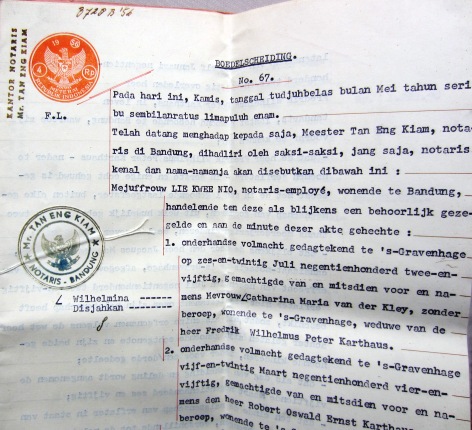 3720 B '56
KANTOR NOTARIS
Mr. TAN ENG KIAM
19 56
4 RP
METERAI
REPUBLIK INDONESIA
F.L.
BOEDELSCHEIDING.
No. 67.
Pada hari ini, Kamis, tanggal tudjuhbelas bulan Mei tahun seri
bu sembilanratus limapuluh enam.
Telah datang menghadap kepada saja, Meester Tan Eng Kiam, nota
ris di Bandung, dihadiri oleh saksi-saksi, jang saja, notaris
kenal dan nama-namanja akan disebutkan dibawah ini :
Mejuffrouw LIE KWEE NIO, notaris-employé, wonende te Bandung,
handelende ten deze als blijkens een behoorlijk geze-
gelde en aan de minute dezer akte gehechte :
1. onderhandse volmacht gedagtekend te 's-Gravenhage
op zes-en-twintig Juli negentienhonderd twee-en-
vijftig, gemachtigde van en mitsdien voor en na-
mens Mevrouw/Catharina Maria van der Kley, zonder
beroep, wonende te 's-Gravenhage, weduwe van de
heer Fredrik Wilhelmus Peter Karthaus.
2. onderhandse volmacht gedagtekend te 's-Gravenhage
vijf-en-twintig Maart negentienhonderd vier-en-
vijftig, gemachtigde van en mitsdien voor en na-
mens den heer Robert Oswald Ernst Kartha
beroep, wonende te 's
Mr. TAN ENG KIAM
NOTARIS - BANDUNG
Wilhelmina ------
Disjahkan ------